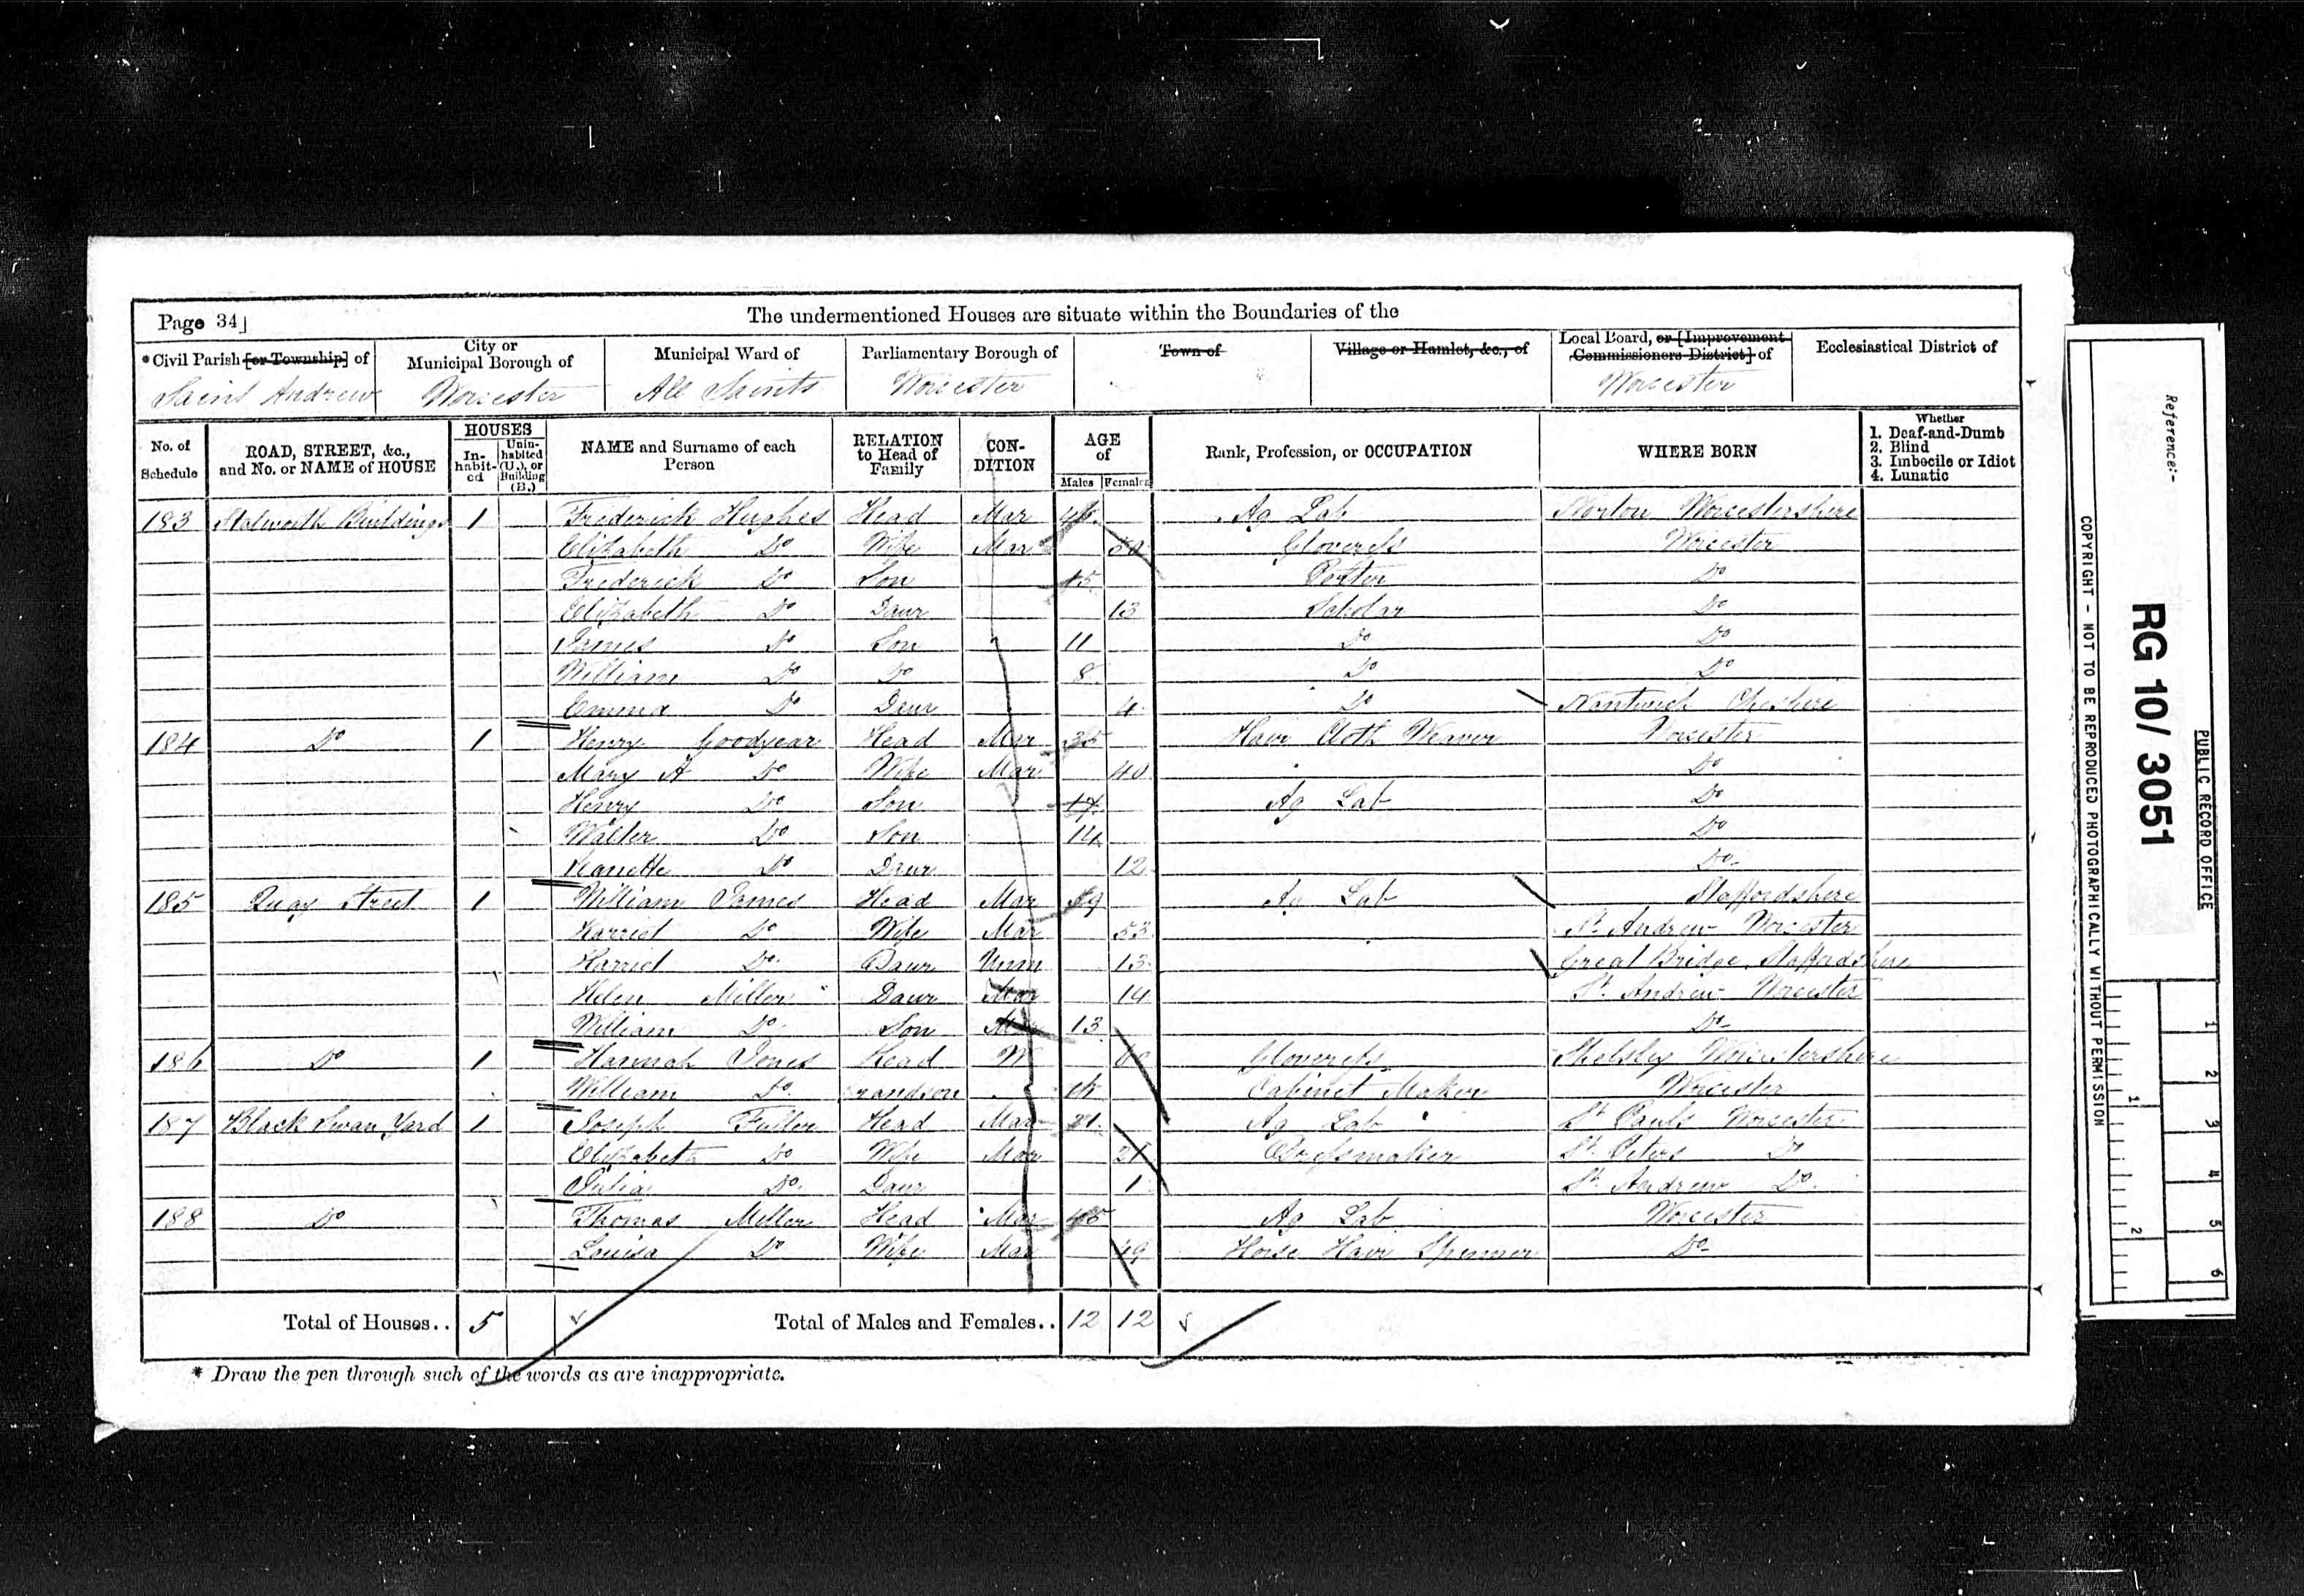 The undermentioned Houses are situate within the Boundaries of the
Page 34]
* Civil Parish [or Township] of
Saint Andrew
City or Municipal Borough of
Worcester
Municipal Ward of
All Saints
Parliamentary Borough of
Worcester
Town of
Village or Hamlet, &c., of
Local Board, or [Improvement Commissioners District] of
Worcester
Ecclesiastical District of
No. of Schedule
ROAD, STREET, &c., and No. or NAME of HOUSE
HOUSES
In-habit-ed
Unin-habited (U.), or Building (B.)
NAME and Surname of each Person
RELATION to Head of Family
CON-DITION
AGE of
Males Females
Rank, Profession, or OCCUPATION
WHERE BORN
Whether
1. Deaf-and-Dumb
2. Blind
3. Imbecile or Idiot
4. Lunatic
183 Buildings 1 Frederick Hughes Head Mar 46 Ag Lab Norton Worcestershire
Elizabeth Do Wife Mar Gloveress Worcester
Frederick Do Son 15 Porter Do
Elizabeth Do Daur 13 Scholar Do
James Do Son 11 Do Do
William Do Do 8 Do Do
Emma Do Daur 4 Do Nantwich Cheshire
184 Do 1 Henry Goodyear Head Mar 35 Hair Cloth Weaver Worcester
Mary A Do Wife Mar 40 Do
Henry Do Son 17 Ag Lab Do
Walter Do Son 14 Do
Do Daur 12 Do
185 Quay Street 1 William James Head Mar 59 Ag Lab Staffordshire
Harriet Do Wife Mar 53 St. Andrew Worcester
Harriet Do Daur Unm 13 Great Bridge Staffordshire
Helen Miller Daur Mar 14 St. Andrew Worcester
William Do Son 13 Do
186 Do 1 Hannah Jones Head W 60 Gloveress Shelsley Worcestershire
William Do Grandson Cabinet Maker Worcester
187 Black Swan Yard 1 Joseph Fuller Head Mar 21 Ag Lab St. Pauls Worcester
Elizabeth Do Wife Mar 21 Dressmaker St. Peters Do
Julia Do Daur 1 St. Andrew Do
188 Do Thomas Miller Head Mar 45 Ag Lab Worcester
Louisa Do Wife Mar 49 Horse Hair Spinner Do
Total of Houses.. 5 Total of Males and Females.. 12 12
* Draw the pen through such of the words as are inappropriate.
Reference:-
RG 10/ 3051
PUBLIC RECORD OFFICE
COPYRIGHT - NOT TO BE REPRODUCED PHOTOGRAPHICALLY WITHOUT PERMISSION
1 2 3 4 5 6
1 2